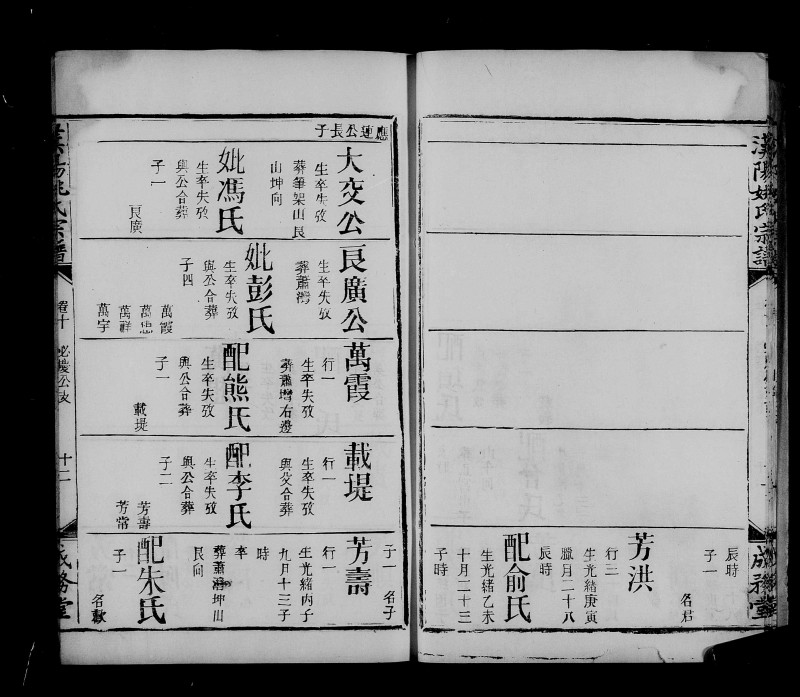 漢陽姚氏宗譜
成務堂
辰時
子一
名君
芳洪
行三
生光緒庚寅
臘月二十八
辰時
配俞氏
生光緒乙未
十月二十三
子時
應運公長子
大交公
生卒失攷
葬筆架山艮
山坤向
妣馮氏
生卒失攷
與公合葬
子一
艮廣
艮廣公
生卒失攷
葬蕭灣
妣彭氏
生卒失攷
與公合葬
子四
萬霞
萬忠
萬祥
萬宇
萬霞
行一
生卒失攷
葬蕭增右邊
配熊氏
生卒失攷
與公合葬
子一
載堤
載堤
行一
生卒失攷
與父合葬
配李氏
生卒失攷
與公合葬
子二
芳壽
芳常
子一
名子
芳壽
行一
生光緒丙子
九月十三子
時
卒
葬蕭灣坤山
艮向
配朱氏
子一
名歡
卷十
必慶公攷
十二
成務堂